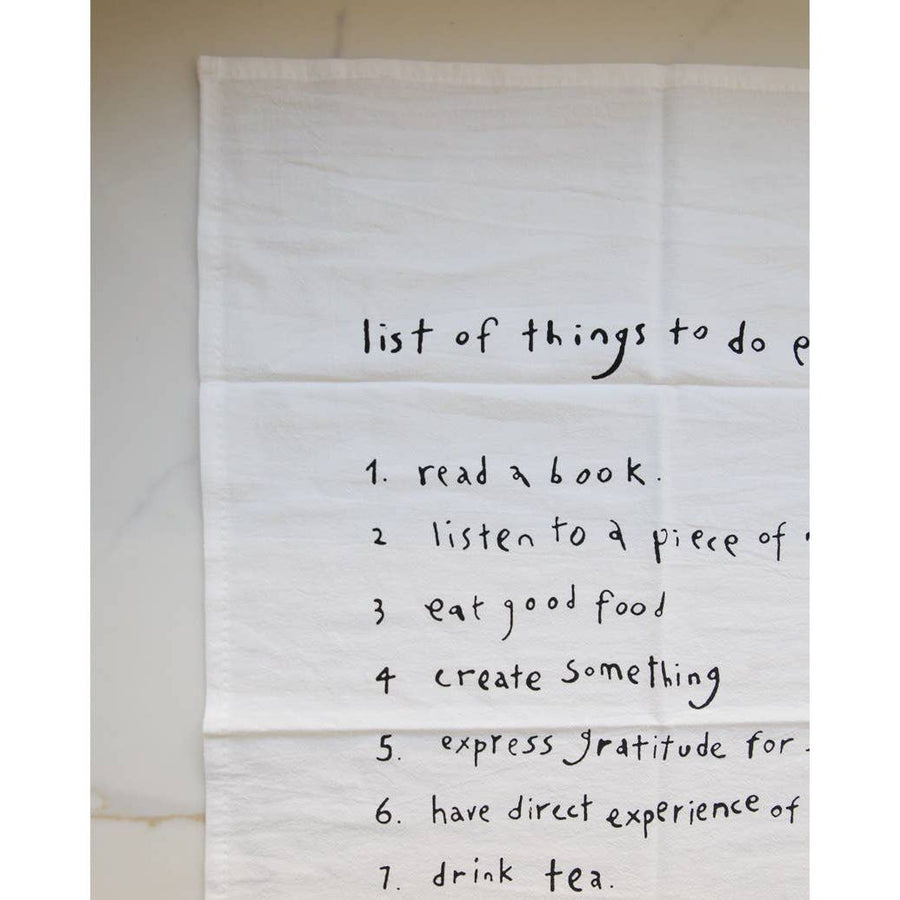 list of things to do e
1. read a book.
2 listen to a piece of
3 eat good food
4 create something
5. express gratitude for
6. have direct experience of
7. drink tea.